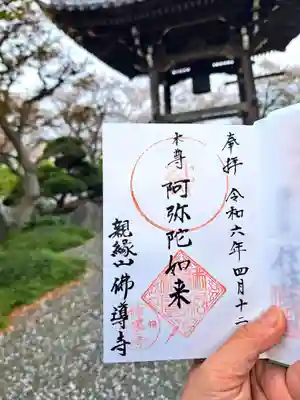 奉拝 令和六年四月十二
本尊
阿弥陀如来
親縁山佛導寺